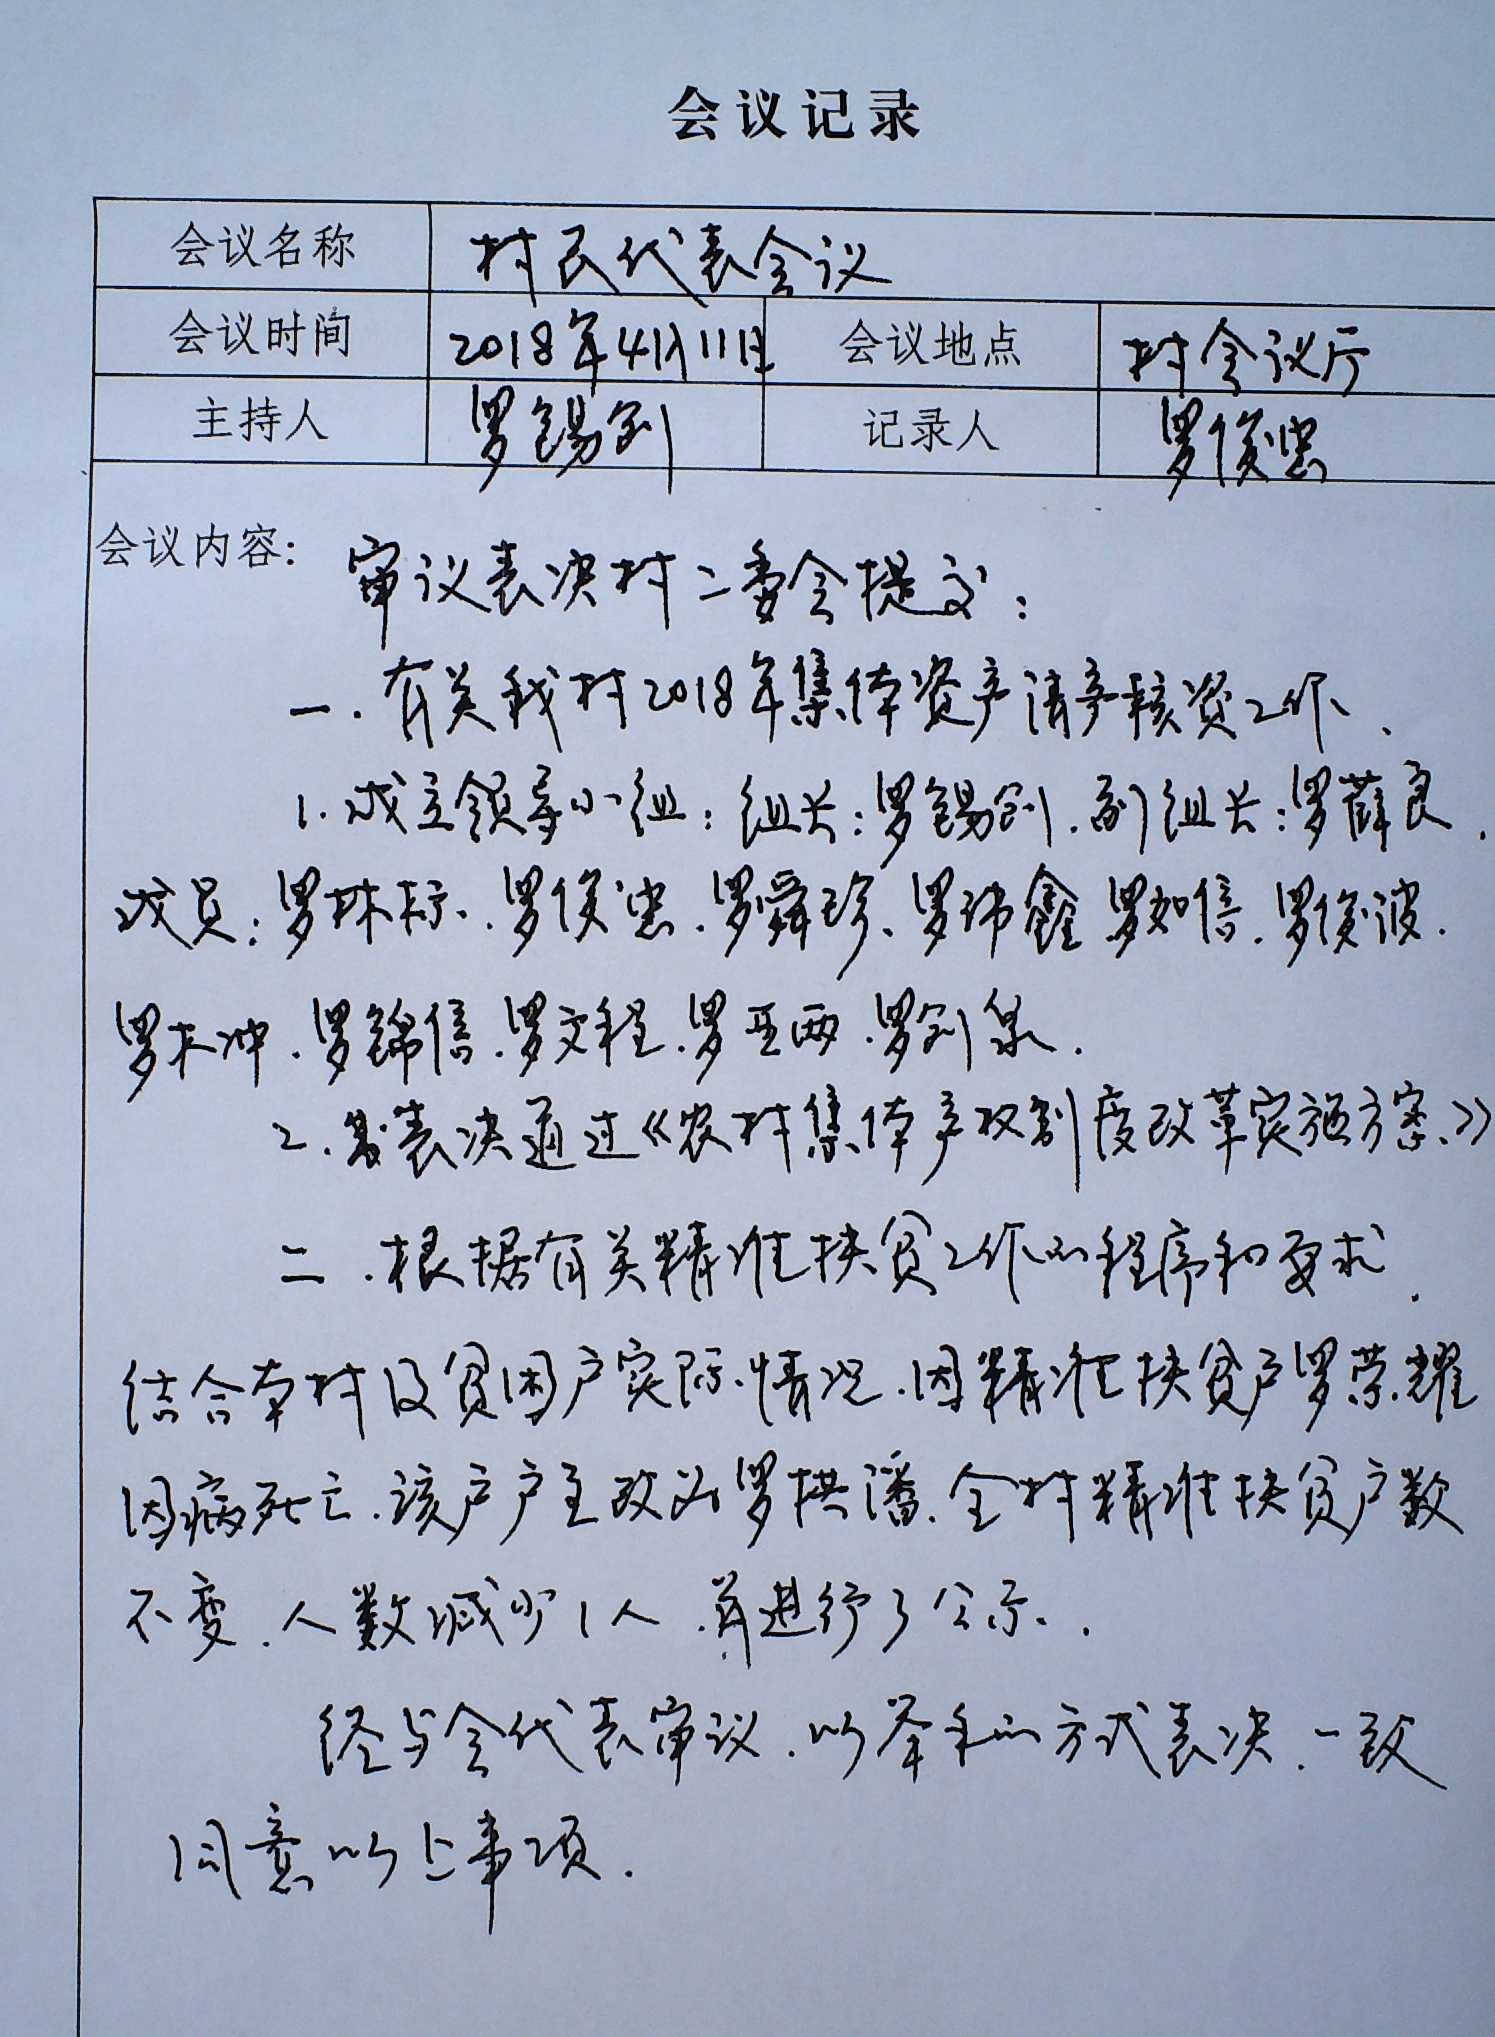 会议记录
会议名称 村民代表会议
会议时间 2018年4月11日 会议地点 村会议厅
主持人 罗锡剑 记录人 罗俊忠
会议内容: 审议表决村二委会提交:
一.有关我村2018年集体资产清产核资工作、
1.成立领导小组:组长:罗锡剑.副组长:罗薛良.
成员:罗林标、罗俊忠.罗舜珍、罗沛鑫 罗如信.罗俊波.
罗木冲.罗锦信.罗文程.罗亚两.罗剑泉.
2.表决通过《农村集体产权制度改革实施方案》
二.根据有关精准扶贫工作的程序和要求.
结合本村及贫困户实际情况.因精准扶贫户罗荣耀
因病死亡.该户户主改为罗拱潘.全村精准扶贫户数
不变.人数减少1人.并进行了公示.
经与会代表审议.以举手的方式表决.一致
同意以上事项.